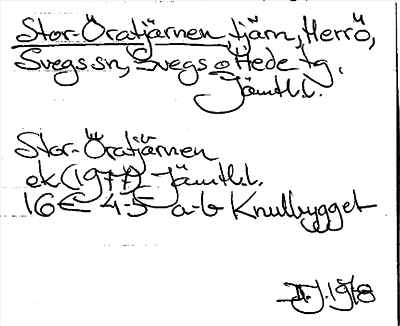 Stor-Öratjärnen, tjärn, Herrö,
Svegs sn, Svegs o Hede tg.
Jämtl.l.
Stor-Öratjärnen
ek (1977) Jämtl.l.
16E 4-5 a-b Knullbygget
J.1978